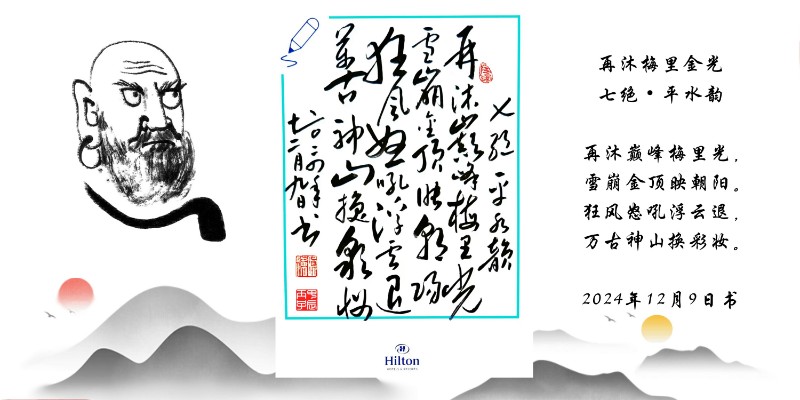 七绝 平水韵
再沐巅峰梅里光
雪崩金顶映朝阳
狂风怒吼浮云退
萬古神山换彩妆
二〇二四年
十二月九日书
Hilton
HOTELS & RESORTS
再沐梅里金光
七绝·平水韵
再沐巅峰梅里光，
雪崩金顶映朝阳。
狂风怒吼浮云退，
万古神山换彩妆。
2024年12月9日书